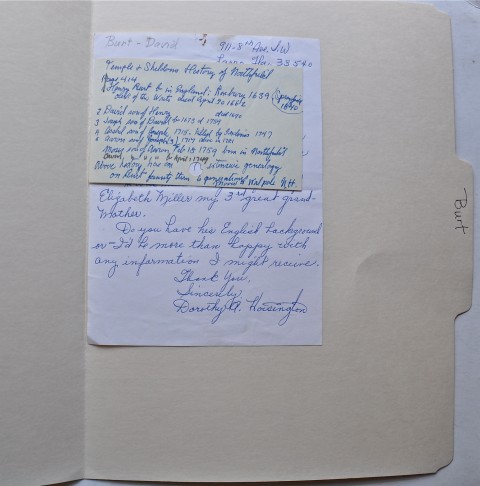 Burt
Burt - David
911-8th Ave. SW
33540
Temple & Sheldons History of Northfield
Page 414
Henry Burt b in England. Roxbury 1639 Springfield
1640
clk of the Writs died April 30 1662
2 David son of Henry died 1690
3 Joseph son of David b 1673 d 1759
4 Asahel son of Joseph, 1715. killed by Indians 1747
Aaron son of Joseph 1717 1791
Moses son of Aaron, Feb 18 1759 born in Northfield
Above history has an extensive genealogy
on Burt family thru 6 generations
moved to Walpole N.H.
Elizabeth Miller my 3rd great grand-
mother.
Do you have his English background
or I'd be more than happy with
any information I might receive.
Thank You.
Sincerely,
Dorothy A. Hoisington